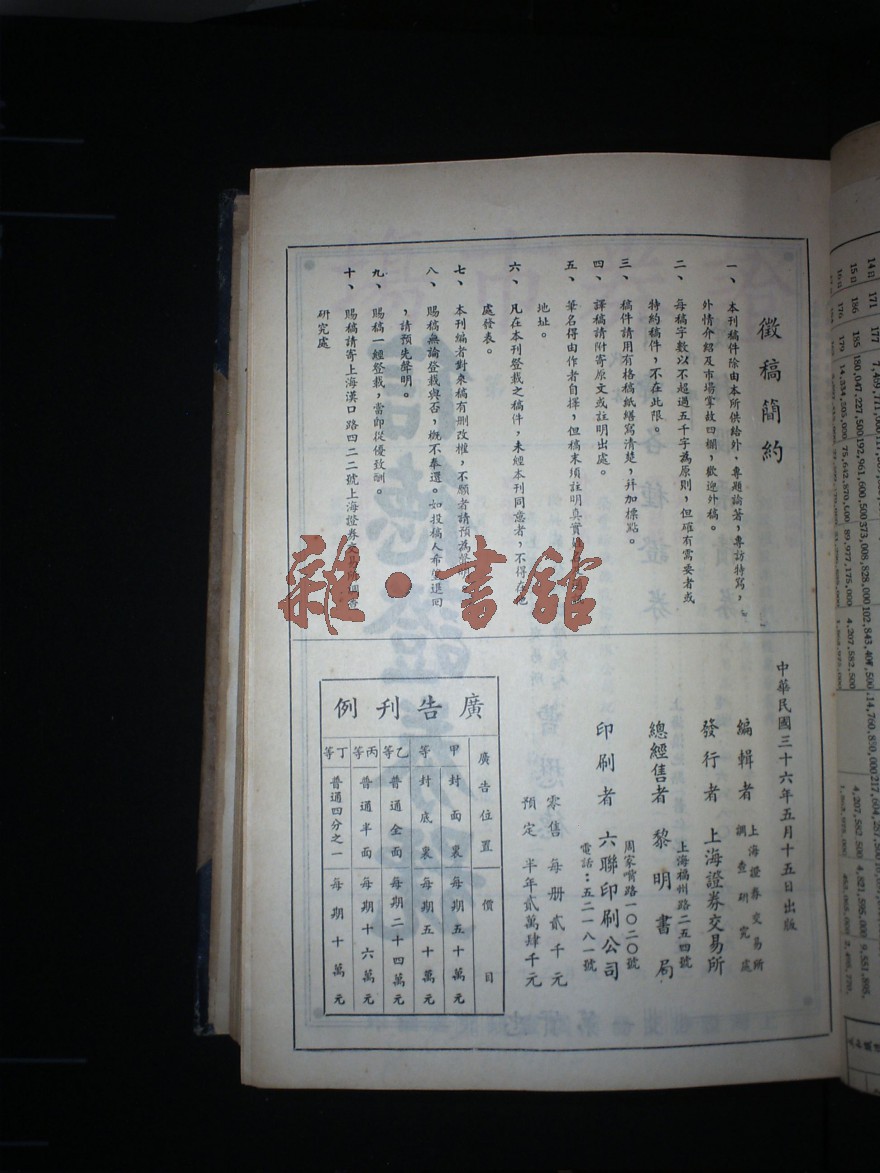 徵稿簡約
一、本刊稿件除由本所供給外、專題論著，專訪特寫，
外情介紹及市場掌故四欄，歡迎外稿。
二、每稿字數以不超過五千字為原則，但確有需要者或
特約稿件，不在此限。
三、稿件請用有格稿紙繕寫清楚，幷加標點。
四、譯稿請附寄原文或註明出處。
五、筆名得由作者自擇，但稿末須註明真實
地址。
六、凡在本刊登載之稿件，未經本刊同意者，不得在他
處發表。
七、本刊編者對來稿有刪改權，不願者請預為聲明
八、賜稿無論登載與否，概不奉還。如投稿人希望退回
，請預先聲明。
九、賜稿一經登載，當即從優致酬。
十、賜稿請寄上海漢口路四二二號上海證券交易所調查
研究處
雜·書館
中華民國三十六年五月十五日出版
編輯者 上海證券交易所
調查研究處
發行者 上海證券交易所
上海福州路二五四號
總經售者 黎明書局
周家嘴路一〇二〇號
印刷者 六聯印刷公司
電話：五二一八一號
零售 每册貳千元
預定 半年貳萬肆千元
廣告刊例
廣告位置 價目
甲等 封面裏 每期五十萬元
封底裏 每期五十萬元
乙等 普通全面 每期二十四萬元
丙等 普通半面 每期十六萬元
丁等 普通四分之一 每期十萬元